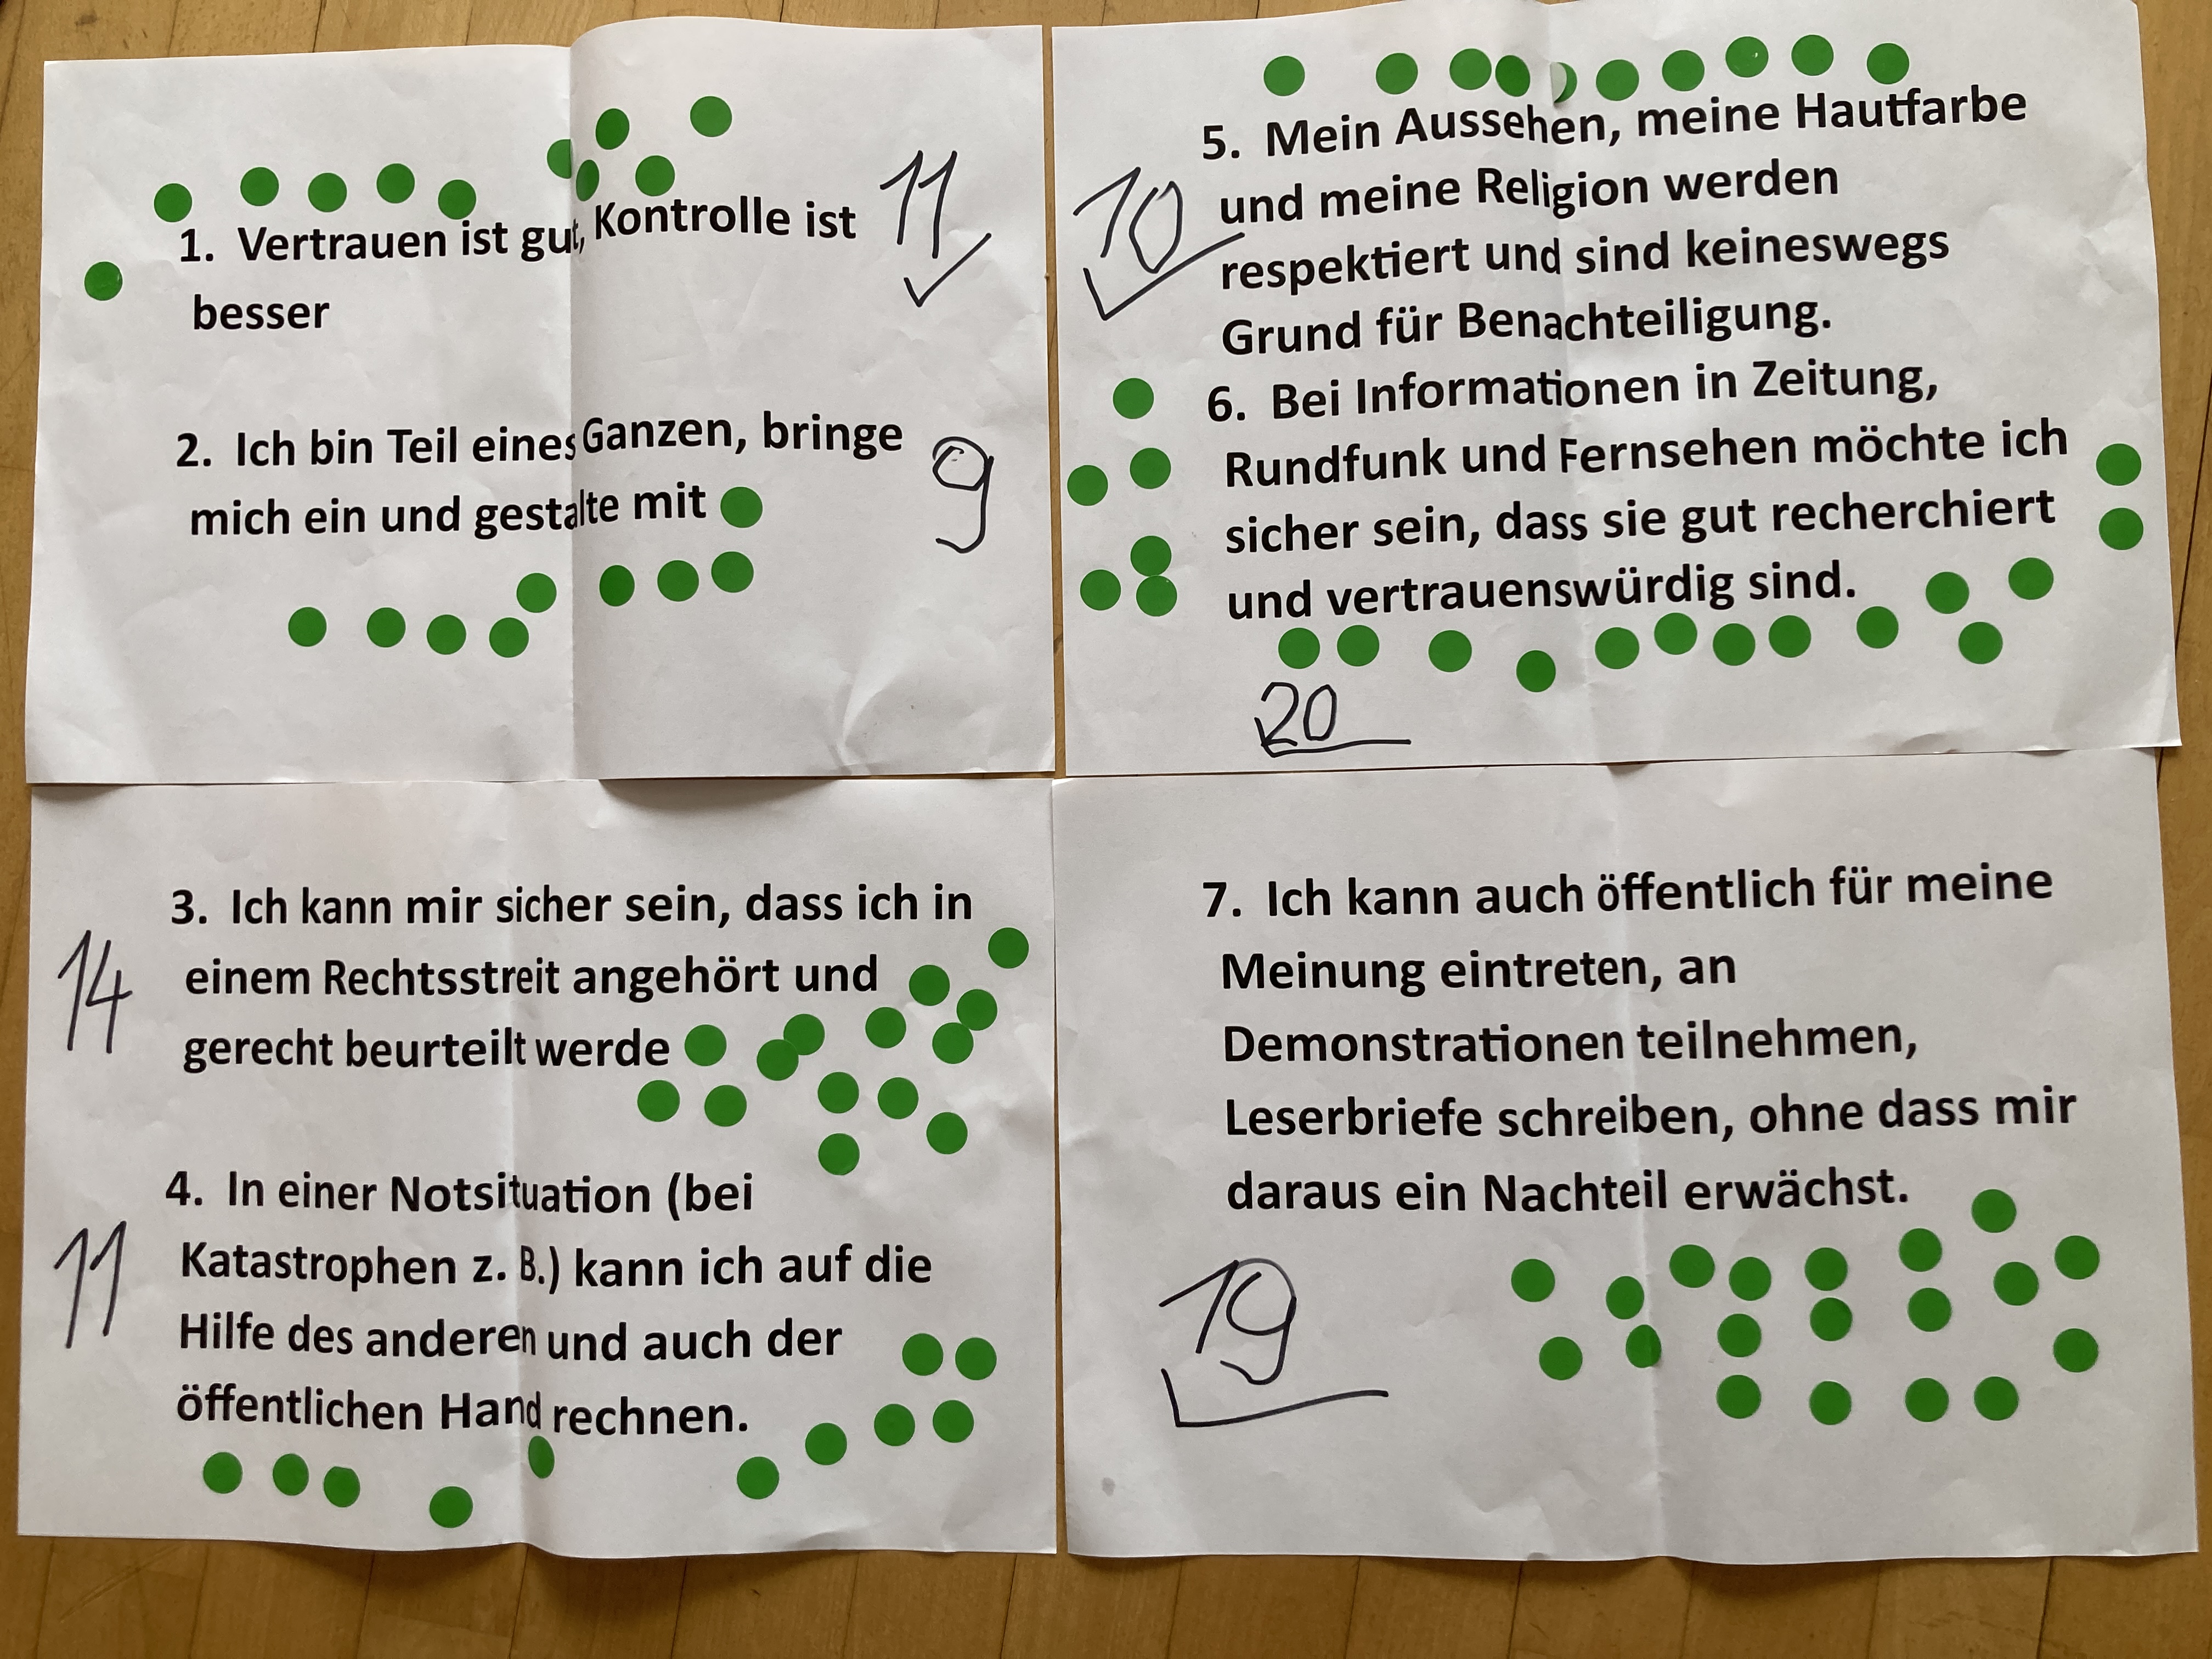 1. Vertrauen ist gut, Kontrolle ist
besser
11
2. Ich bin Teil eines Ganzen, bringe
mich ein und gestalte mit
9
3. Ich kann mir sicher sein, dass ich in
einem Rechtsstreit angehört und
gerecht beurteilt werde
14
4. In einer Notsituation (bei
Katastrophen z. B.) kann ich auf die
Hilfe des anderen und auch der
öffentlichen Hand rechnen.
11
5. Mein Aussehen, meine Hautfarbe
und meine Religion werden
respektiert und sind keineswegs
Grund für Benachteiligung.
10
6. Bei Informationen in Zeitung,
Rundfunk und Fernsehen möchte ich
sicher sein, dass sie gut recherchiert
und vertrauenswürdig sind.
20
7. Ich kann auch öffentlich für meine
Meinung eintreten, an
Demonstrationen teilnehmen,
Leserbriefe schreiben, ohne dass mir
daraus ein Nachteil erwächst.
19